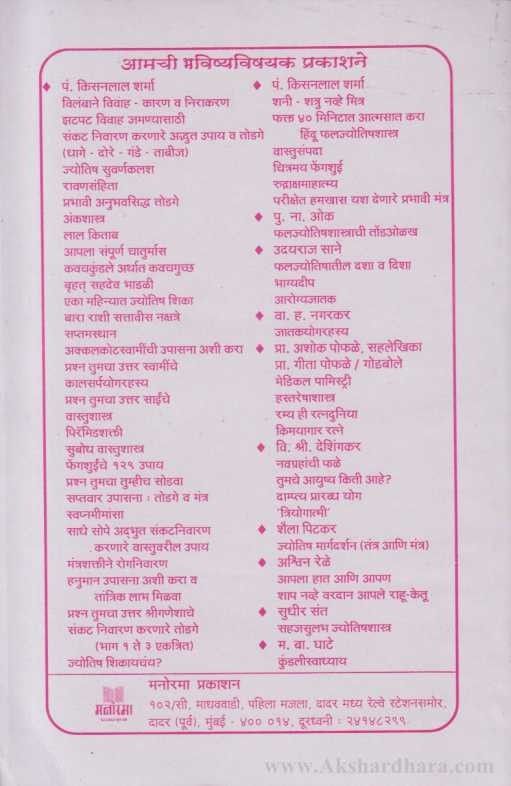 आमची भविष्यविषयक प्रकाशने
♦ पं. किसनलाल शर्मा
विलंबाने विवाह - कारण व निराकरण
झटपट विवाह जमण्यासाठी
संकट निवारण करणारे अद्भुत उपाय व तोडगे
(धागे - दोरे - गंडे - ताबीज)
ज्योतिष सुवर्णकलश
रावणसंहिता
प्रभावी अनुभवसिद्ध तोडगे
अंकशास्त्र
लाल किताब
आपला संपूर्ण चातुर्मास
कवचकुंडले अर्थात कवचगुच्छ
बृहत् सहदेव भाडळी
एका महिन्यात ज्योतिष शिका
बारा राशी सत्तावीस नक्षत्रे
सप्तमस्थान
अक्कलकोटस्वामींची उपासना अशी करा
प्रश्न तुमचा उत्तर स्वामींचे
कालसर्पयोगरहस्य
प्रश्न तुमचा उत्तर साईंचे
वास्तुशास्त्र
पिरॅमिडशक्ती
सुबोध वास्तुशास्त्र
फेंगशुईचे १२९ उपाय
प्रश्न तुमचा तुम्हीच सोडवा
सप्तवार उपासना : तोडगे व मंत्र
स्वप्नमीमांसा
साधे सोपे अद्‌भुत संकटनिवारण
करणारे वास्तुवरील उपाय
मंत्रशक्तीने रोगनिवारण
हनुमान उपासना अशी करा व
तांत्रिक लाभ मिळवा
प्रश्न तुमचा उत्तर श्रीगणेशाचे
संकट निवारण करणारे तोडगे
(भाग १ ते ३ एकत्रित)
ज्योतिष शिकायचंय?
♦ पं. किसनलाल शर्मा
शनी - शत्रु नव्हे मित्र
फक्त ४० मिनिटात आत्मसात करा
हिंदू फलज्योतिषशास्त्र
वास्तुसंपदा
चित्रमय फेंगशुई
रुद्राक्षमाहात्म्य
परीक्षेत हमखास यश देणारे प्रभावी मंत्र
♦ पु. ना. ओक
फलज्योतिषशास्त्राची तोंडओळख
♦ उदयराज साने
फलज्योतिषातील दशा व दिशा
भाग्यदीप
आरोग्यजातक
♦ वा. ह. नगरकर
जातकयोगरहस्य
♦ प्रा. अशोक पोफळे, सहलेखिका
प्रा. गीता पोफळे / गोडबोले
मेडिकल पामिस्ट्री
हस्तरेषाशास्त्र
रम्य ही रत्नदुनिया
किमयागार रत्ने
♦ वि. श्री. देशिंगकर
नवग्रहांची फळे
तुमचे आयुष्य किती आहे?
दाम्पत्य प्रारब्ध योग
'त्रियोगात्मी'
♦ शैला पिटकर
ज्योतिष मार्गदर्शन (तंत्र आणि मंत्र)
♦ अश्विन रेळे
आपला हात आणि आपण
शाप नव्हे वरदान आपले राहू-केतू
♦ सुधीर संत
सहजसुलभ ज्योतिषशास्त्र
♦ म. बा. घाटे
कुंडलीस्वाध्याय
मनोरमा
मनोरमा प्रकाशन
१०२/सी, माधववाडी, पहिला मजला, दादर मध्य रेल्वे स्टेशनसमोर,
दादर (पूर्व), मुंबई - ४०० ०१४, दूरध्वनी : २४१४८२९९.
www.Akshardhara.com